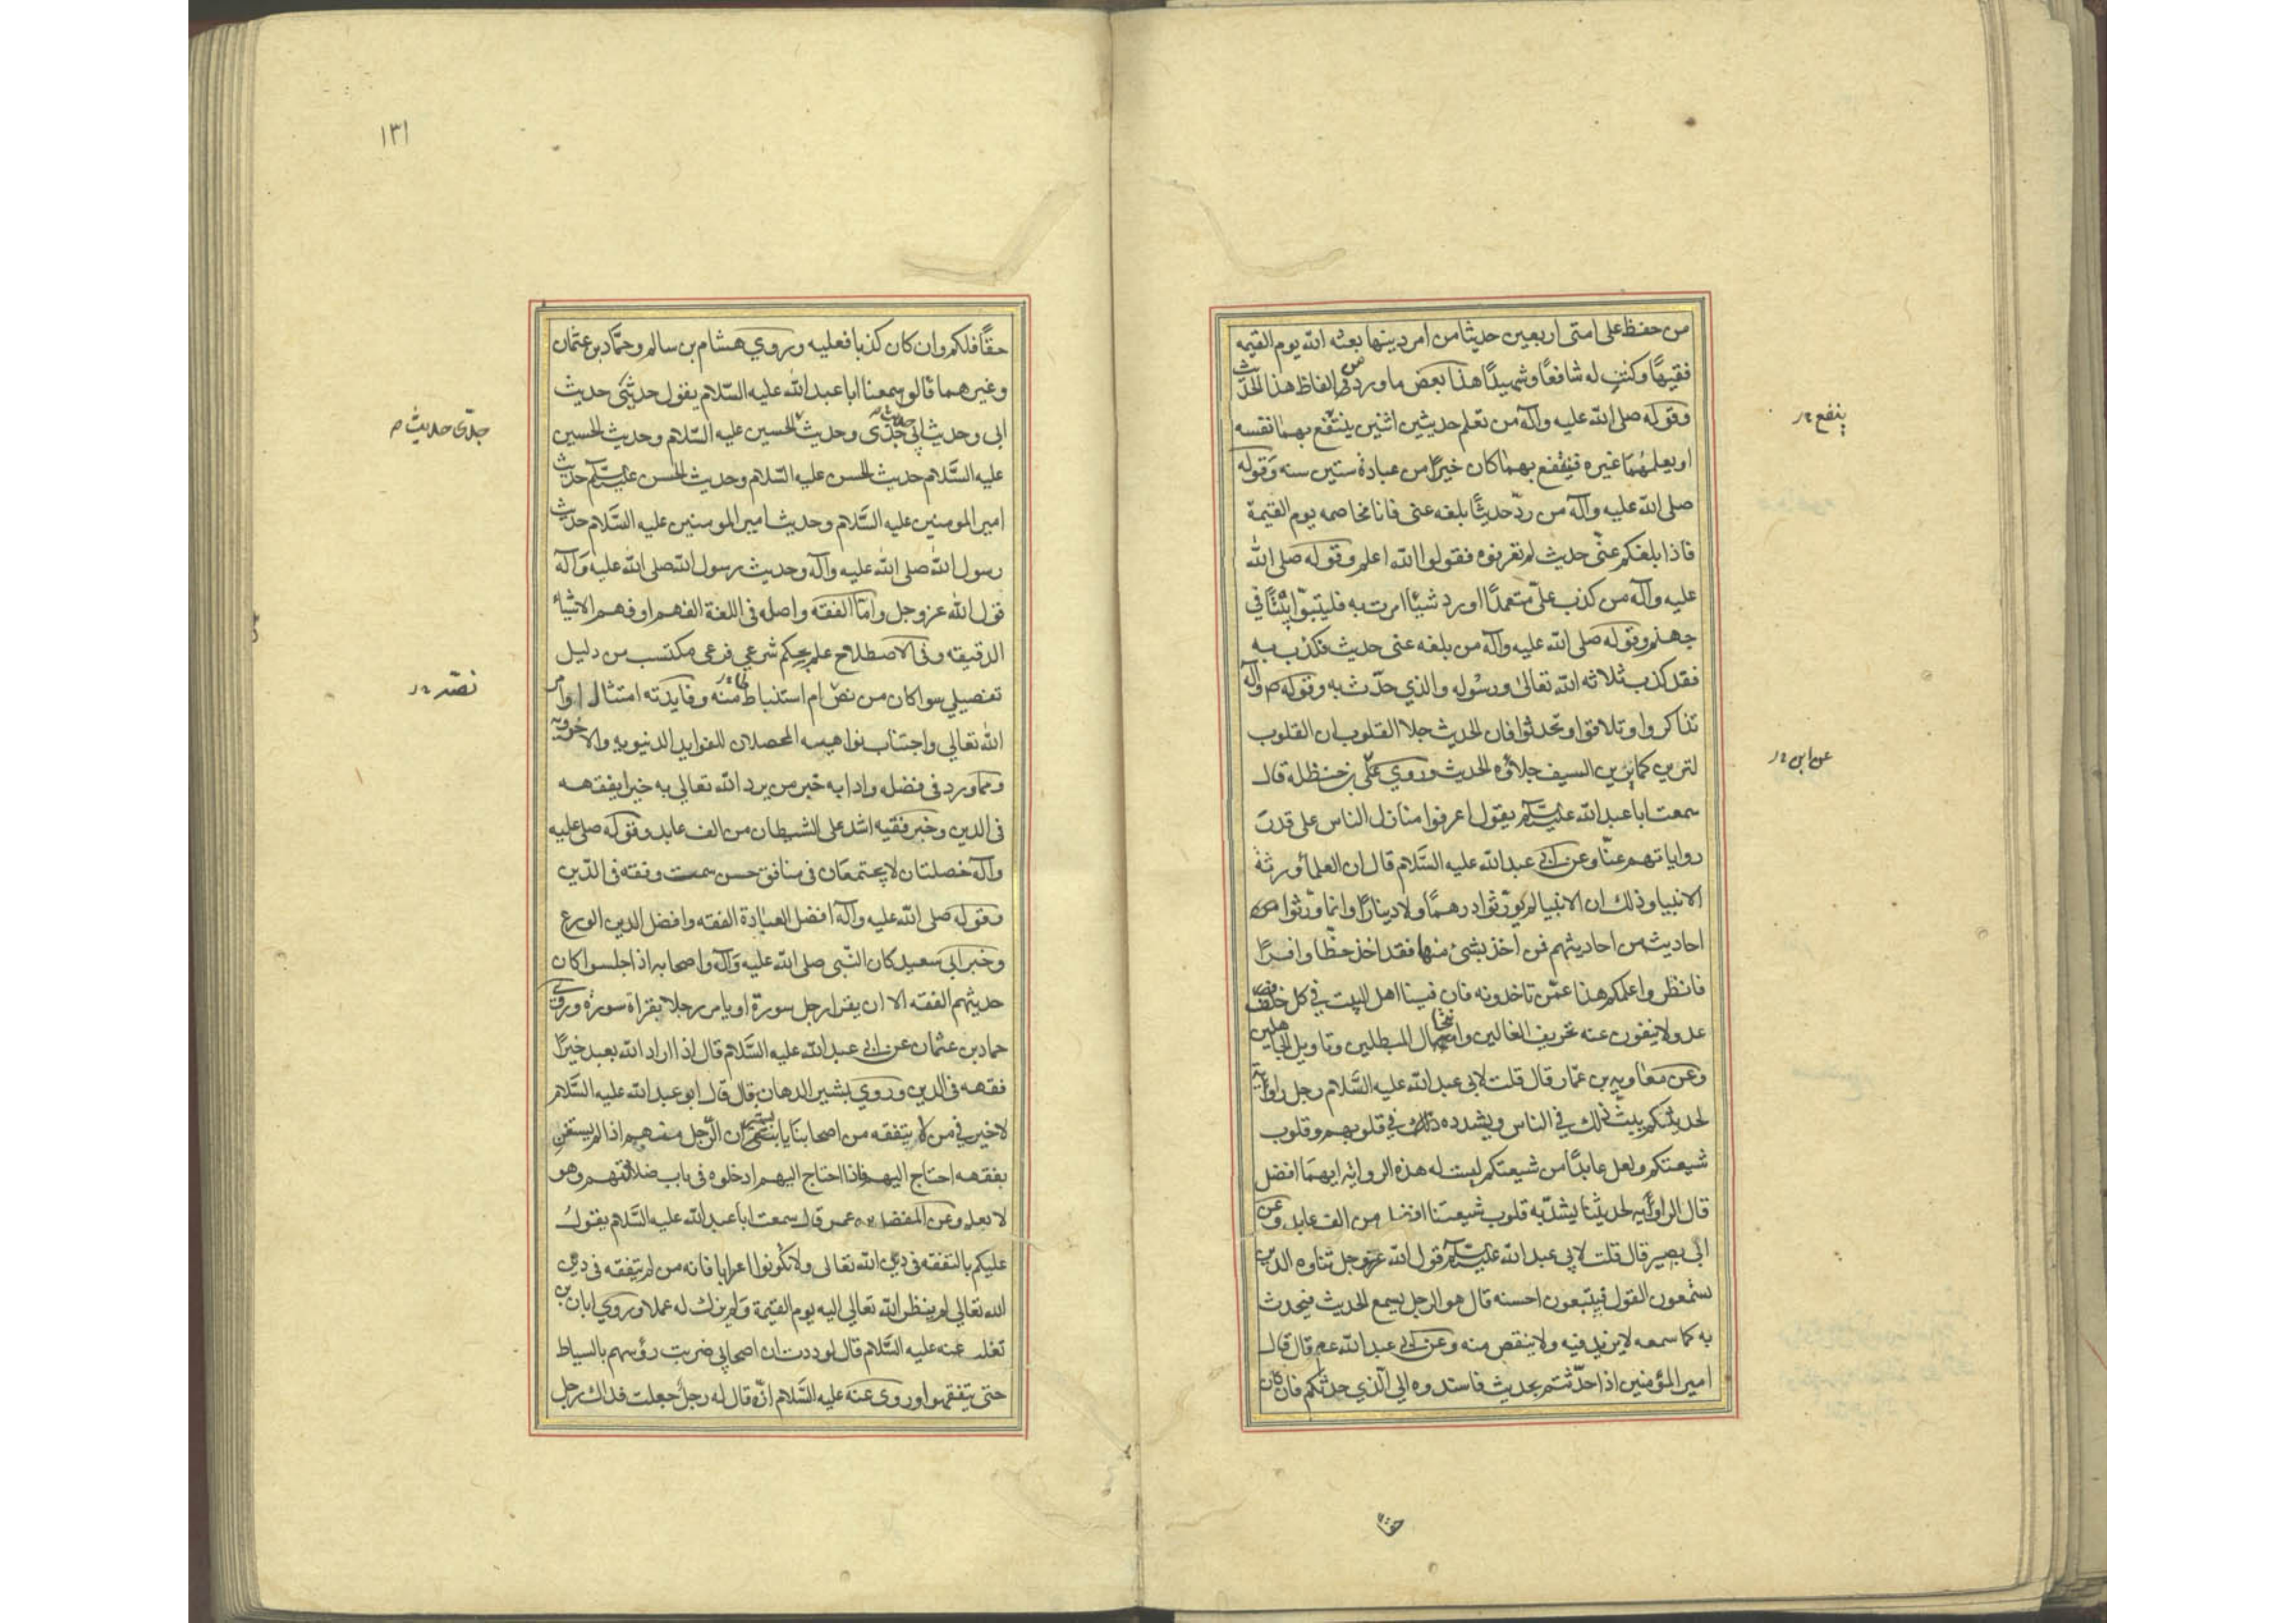 من حفظ على امتى اربعين حديثا من امر دينها بعثه الله يوم القيمه
فقيهًا وكنت له شافعًا وشهيدًا هذا بعض ما ورد من الفاظ هذا الحديث
وقوله صلى الله عليه وآله من تعلم حديثين اثنين ينتفع بهما نفسه
او يعلمهما غيره فينتفع بهما كان خيرًا من عبادة ستين سنه وقوله
صلى الله عليه وآله من ردّ حديثًا بلغه عنى فانا مخاصمه يوم القيمة
فاذا بلغكم عنّى حديث لم تعرفوه فقولوا الله اعلم وقوله صلى الله
عليه وآله من كذب علىّ متعمدًا او رد شيئًا امرت به فليتبوّا بيتًا في
جهنم وقوله صلى الله عليه وآله من بلغه عنى حديث فكذب به
فقد كذب ثلاثه الله تعالى ورسوله والذي حدّث به وقوله ص وآله
تذاكروا وتلاقوا وتحدثوا فان الحديث جلا القلوب ان القلوب
لترين كما يرين السيف جلاؤه الحديث وروي علّى بن حنظله قال
سمعت ابا عبد الله عليه السلام يقول اعرفوا منازل الناس على قدر
رواياتهم عنّا وعن ابى عبد الله عليه السَّلام قال ان العلما ورثة
الانبيا وذلك ان الانبيا لم يورّثوا درهمًا ولا دينارًا وانما ورّثوا من
احاديث من احاديثهم فمن اخذ بشئ منها فقد اخذ حظّا وافرًا
فانظروا علمكم هذا عمّن تاخذونه فان فينا اهل البيت في كل خلف
عدولا ينفون عنه تحريف الغالين وانتحال المبطلين وتاويل الجاهلين
وعن معاويه بن عمّار قال قلت لابى عبد الله عليه السَّلام رجل راوية
لحديثكم يبثّ ذلك في الناس ويشدده ذلك في قلوبهم وقلوب
شيعتكم ولعل عابدًا من شيعتكم ليست له هذه الروايه ايهما افضل
قال الراوية لحديثنا يشدّ به قلوب شيعتنا افضل من الف عابد وعن
ابى بصير قال قلت لابي عبد الله عليه السلام قول الله عزوجل ثناوه الذين
يستمعون القول فيتبعون احسنه قال هو الرجل يسمع الحديث فيحدث
به كما سمعه لا يزيد فيه ولا ينقص منه وعن ابى عبد الله عم قال قال
امير المؤمنين اذا حدّثتم بحديث فاسندوه الى الّذي حدثكم فان كان
ينفع
عن ابن
حقًا
١٣١
حقًا فلكم وان كان كذبا فعليه وروي هشام بن سالم وحمّاد بن عثمان
وغيرهما قالوا سمعنا ابا عبد الله عليه السّلام يقول حديثى حديث
ابى وحديث ابى حديث جدّى وحديث الحسين عليه السّلام وحديث الحسين
عليه السَّلام حديث الحسن عليه السّلام وحديث الحسن عليه السلام حديث
امير المومنين عليه السَّلام وحديث امير المومنين عليه السَّلام حديث
رسول الله صلى الله عليه وآله وحديث رسول الله صلى الله عليه وآله
قول الله عزوجل وامّا الفقه واصله فى اللغة الفهم او فهم الاشياء
الدقيقه وفى الاصطلاح علم بحكم شرعي فرعى مكتسب من دليل
تفصيلي سوا كان من نصّ ام استنباط منه وفايدته امتثال اوامر
الله تعالي واجتناب نواهيه المحصلان للفوايد الدنيويه والاخرويه
ومما ورد فى فضله وادابه خبر من يرد الله تعالي به خيرا يفقهه
فى الدين وخبر فقيه اشد على الشيطان من الف عابد وقوله صلى عليه
وآله خصلتان لا يجتمعان فى منافق حسن سمت وفقه فى الدّين
وقوله صلى الله عليه وآله افضل العبادة الفقه وافضل الدين الورع
وخبر ابى سعيد كان النّبى صلى الله عليه وآله واصحابه اذا جلسوا كان
حديثهم الفقه الا ان يقرا رجل سورة او يامر رجلا بقراة سورة وروى
حماد بن عثمان عن ابى عبد الله عليه السَّلام قال اذا اراد الله بعبد خيرًا
فقهه فى الدين وروي بشير الدهان قال قال ابو عبد الله عليه السَّلام
لا خير في من لا يتفقه من اصحابنا يا بشير ان الرّجل منهم اذا لم يستغن
بفقهه احتاج اليهم فاذا احتاج اليهم ادخلوه فى باب ضلالتهم وهو
لا يعلم وعن المفضل بن عمر قال سمعت ابا عبد الله عليه السّلام يقول
عليكم بالتفقه فى دين الله تعالى ولا تكونوا اعرابا فانه من لم يتفقه فى دين
الله تعالي لم ينظر الله تعالي اليه يوم القيمة ولم يزك له عملا وروي ابان بن
تغلب عنه عليه السَّلام قال لوددت ان اصحابي ضربت رؤسهم بالسياط
حتى يتفقهوا وروى عنه عليه السَّلام انّه قال له رجل جعلت فداك رجل
جدّى حديث م